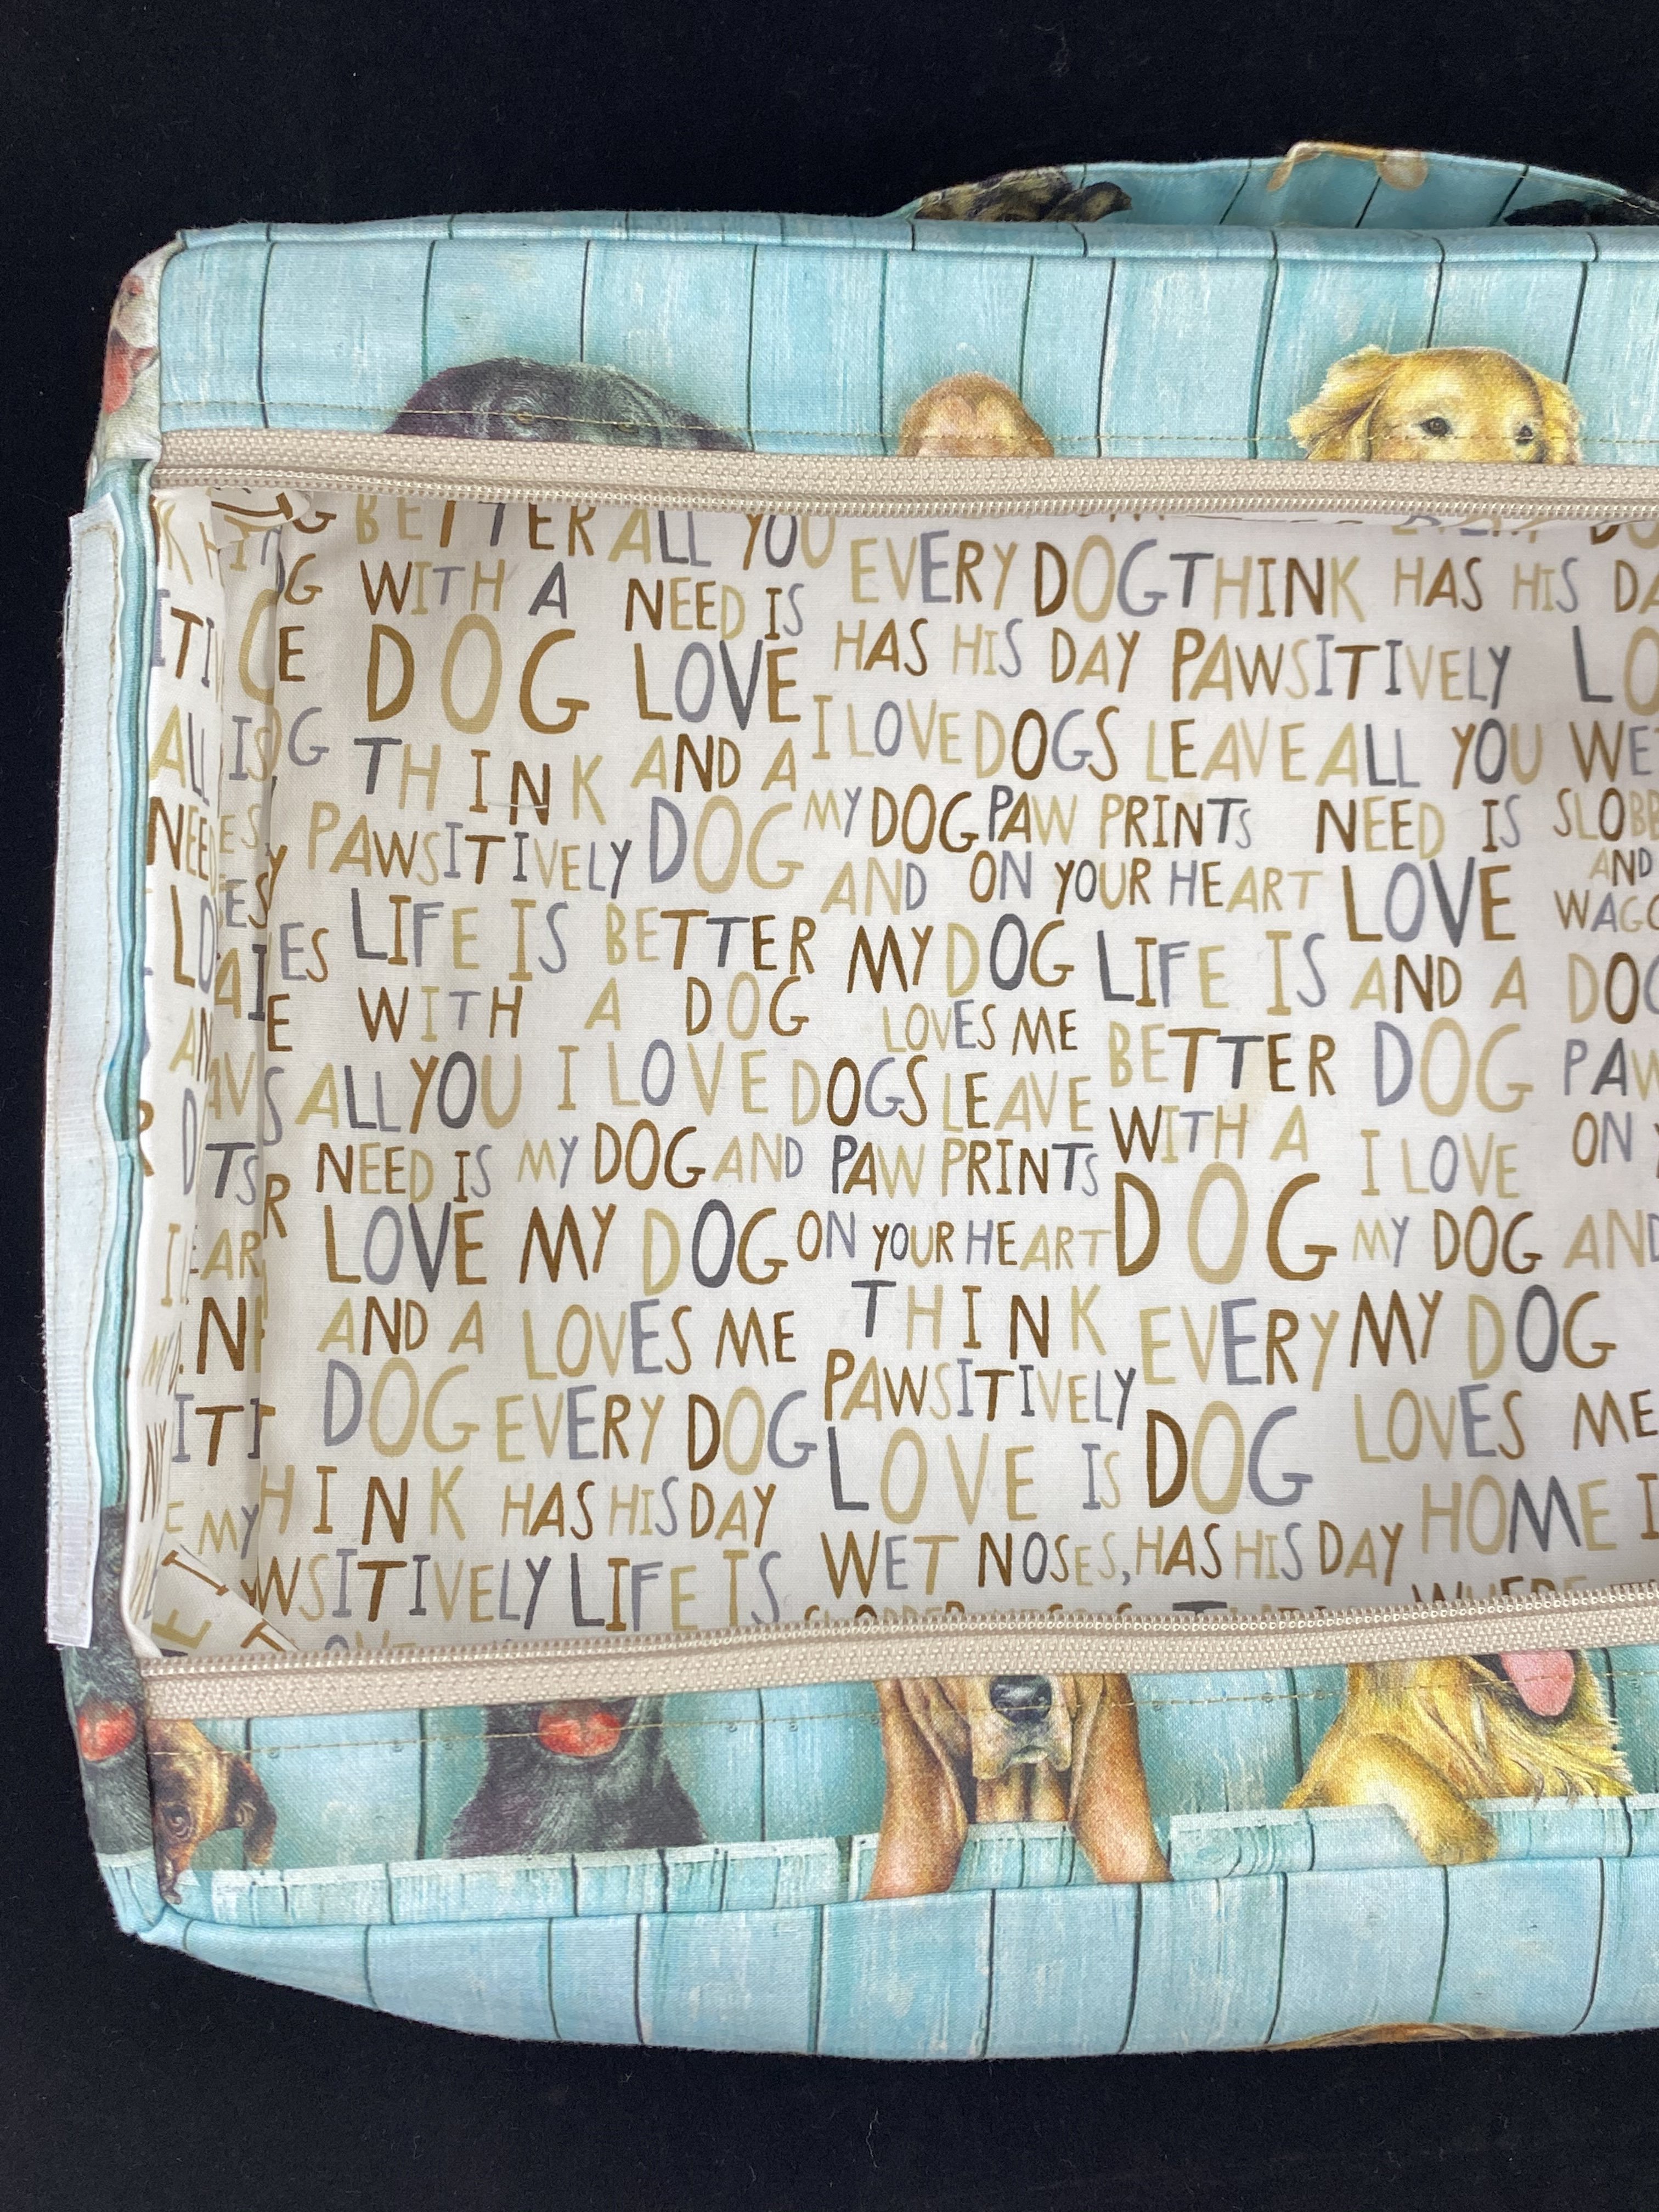 BETTER ALL YOU
WITH A NEED IS EVERY DOG THINK HAS HIS
DOG LOVE HAS HIS DAY PAWSITIVELY
THINK AND A I LOVE DOGS LEAVE ALL YOU
PAWSITIVELY DOG MY DOG PAW PRINTS NEED IS
AND ON YOUR HEART LOVE AND
LIFE IS BETTER MY DOG LIFE IS AND A
WITH A DOG LOVES ME BETTER DOG
ALL YOU I LOVE DOGS LEAVE WITH A I LOVE ON
NEED IS MY DOG AND PAW PRINTS DOG
LOVE MY DOG ON YOUR HEART MY DOG
AND A LOVES ME THINK EVERY MY DOG
DOG EVERY DOG PAWSITIVELY LOVES ME
HINK HAS HIS DAY LOVE IS DOG HOME
WSITIVELY LIFE IS WET NOSES, HAS HIS DAY